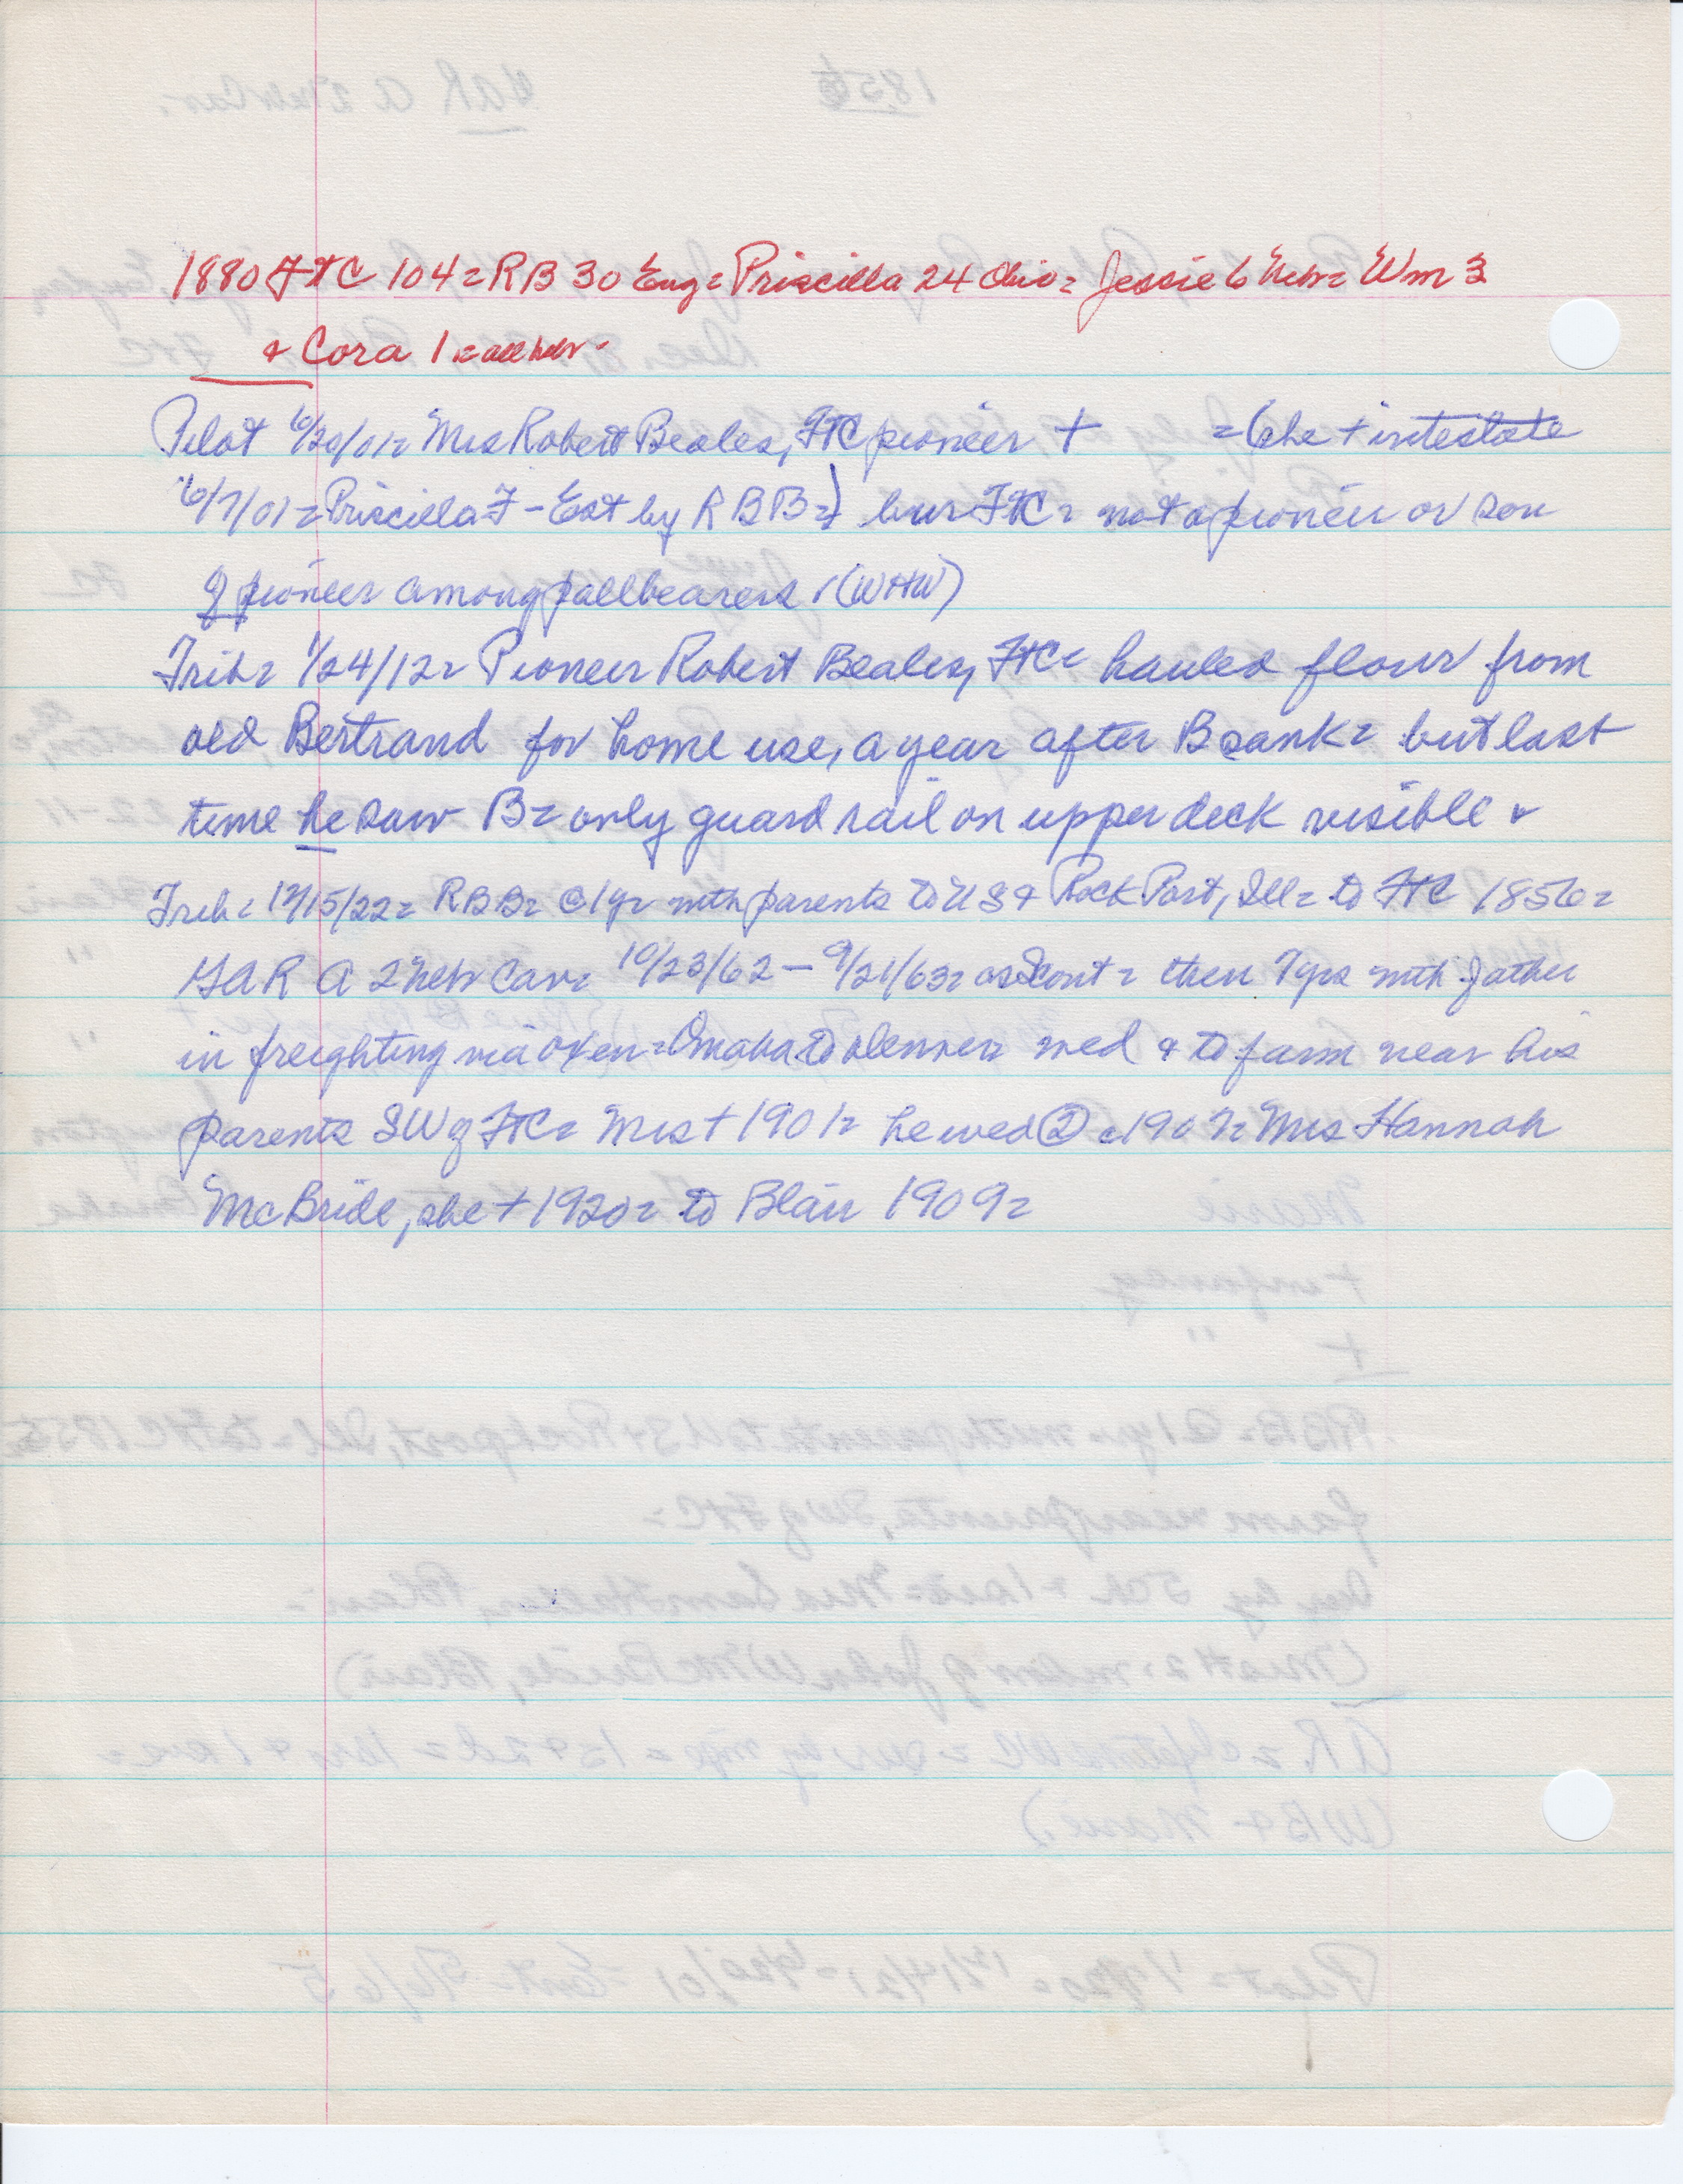 1880 FTC 104 = RB 30 Eng = Priscilla 24 Ohio = Jessie 6 Neb = Wm 3
& Cora 1 = all Nebr -
Pilot 6/20/01 = Mrs Robert Beales, FTC pioneer + = (she + intestate
6/7/01 = Priscilla F - Est by RBB =) bur FTC = not a pioneer or son
of pioneer among pallbearers ! (WHW)
Trib = 1/24/12 = Pioneer Robert Beales, FTC = hauled flour from
old Bertrand for home use, a year after B sank = but last
time he saw B = only guard rail on upper deck visible &
Trib = 12/15/22 = RBB = @ 1 yr with parents to US & Rock Port, Ill = to FTC 1856 =
GAR A 2 Neb Cav = 10/23/62 - 9/21/63 = as Scout = then 7 yrs with father
in freighting via oxen = Omaha to Denver = wed & to farm near his
parents SW of FTC = Mrs + 1901 = he wed ② c 1907 = Mrs Hannah
McBride, she + 1920 = to Blair 1909 =